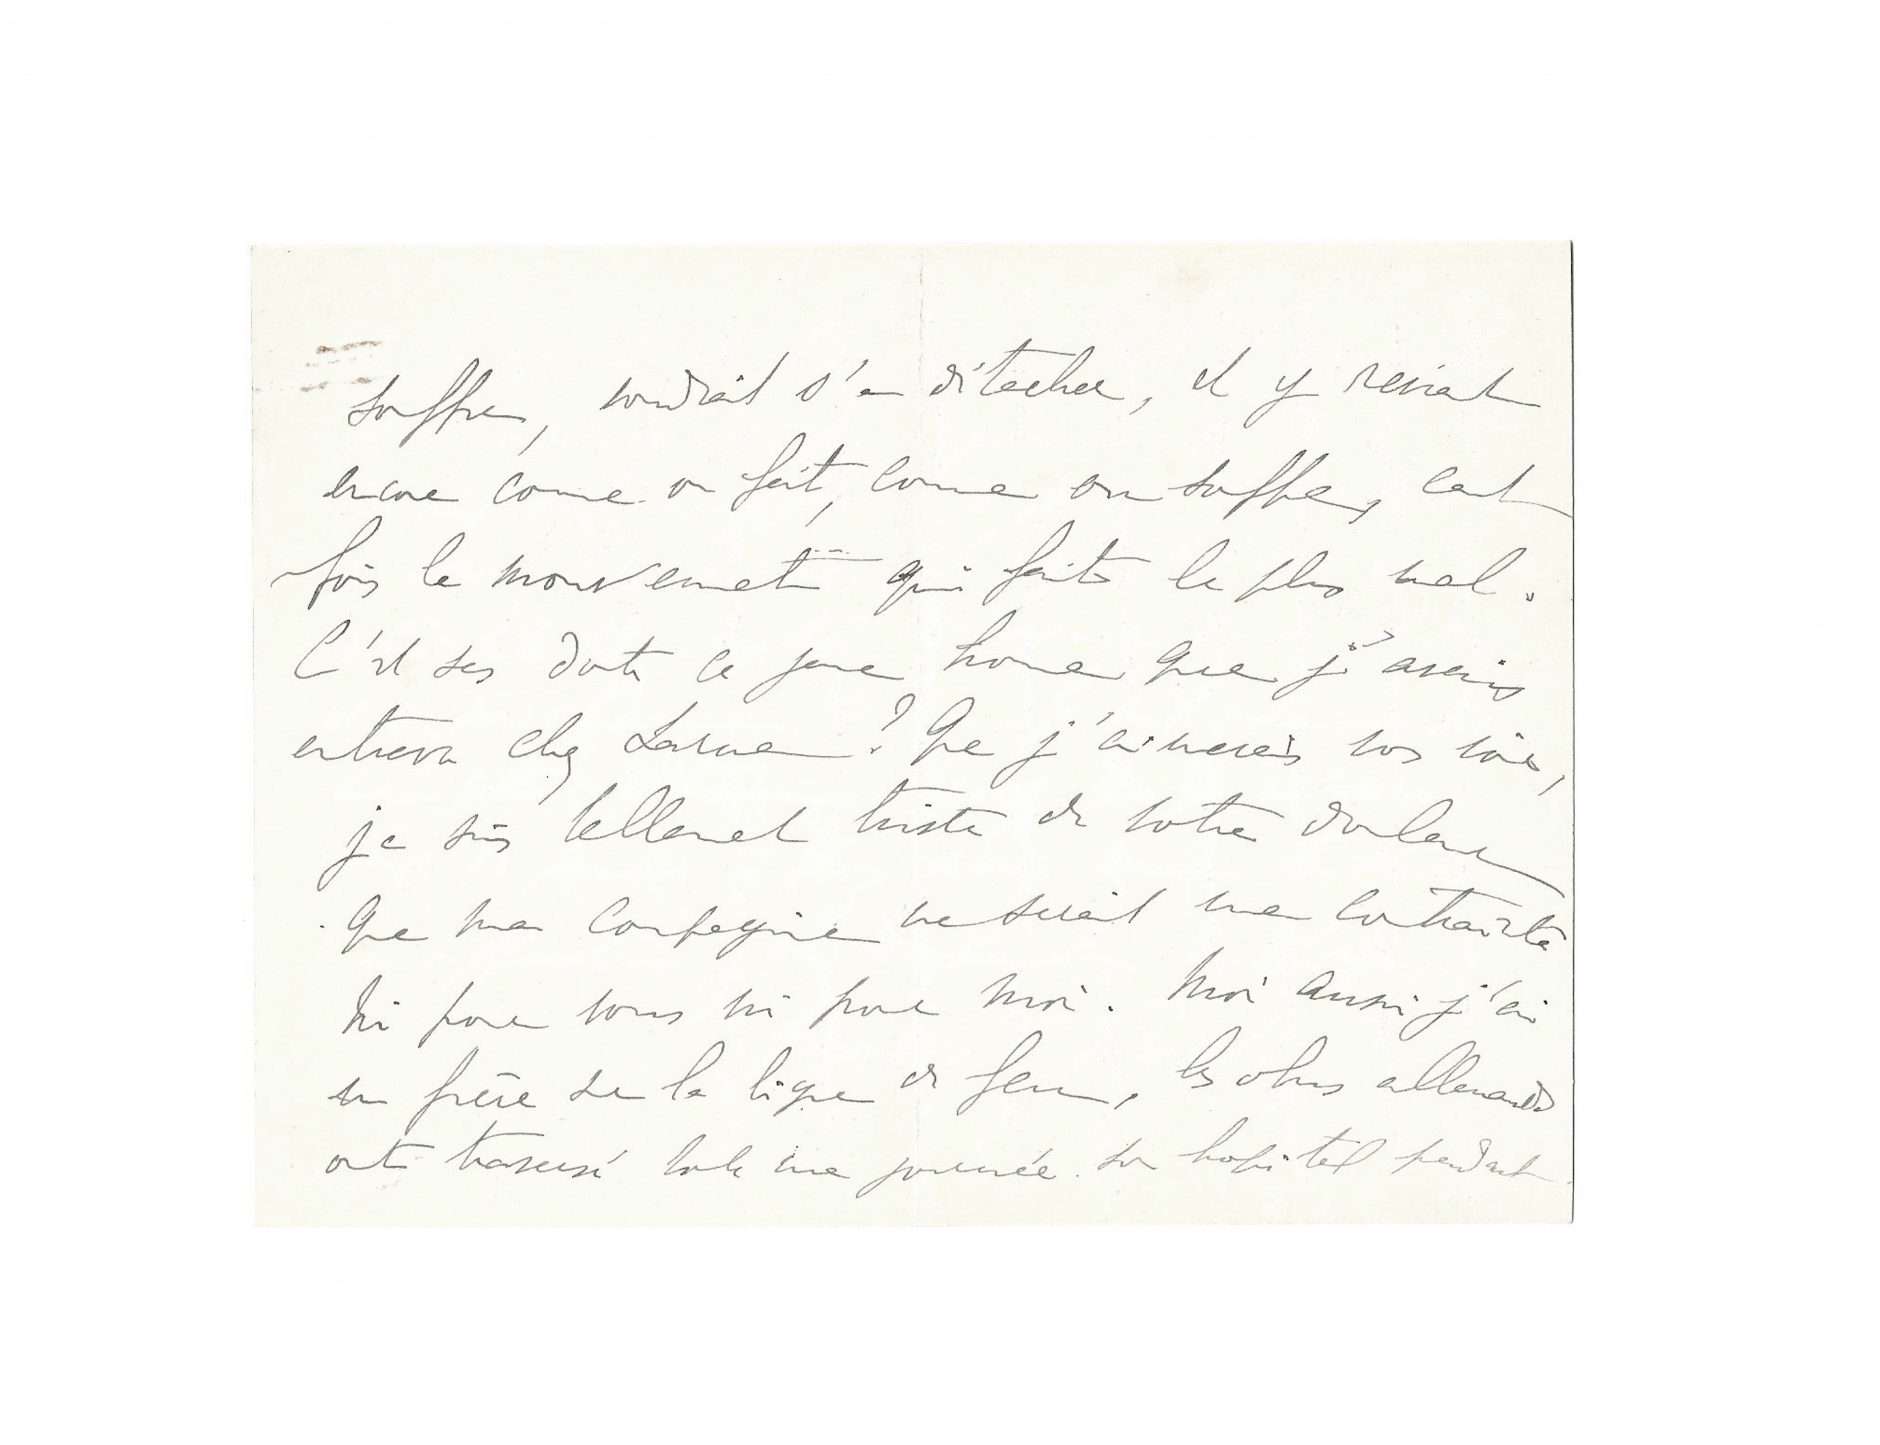 souffre, voudrait s'en détacher, et y revient
encore comme on fait, comme on souffre, cent
fois le mouvement qui fait le plus mal.
C'est sans doute ce jeune homme que j'avais
entrevu chez Larue ? Que j'aimerais vous voir,
je suis tellement triste de votre douleur
que ma compagnie ne serait une contrainte
ni pour vous ni pour moi. Moi aussi j'ai
un frère sur la ligne de feu, les obus allemands
ont traversé toute une journée son hopital pendant